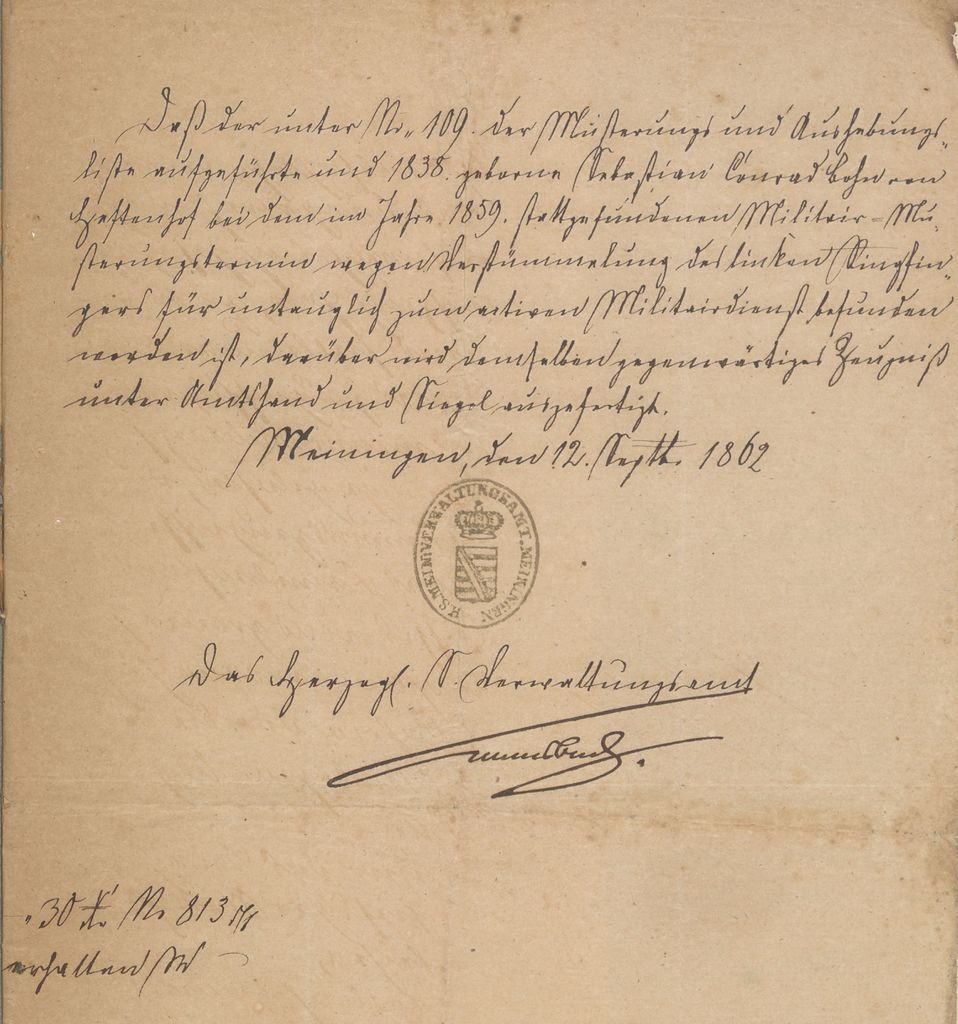 Daß der unter No. 109. der Musterungs und Aushebungs-
liste aufgeführte und 1838. geborne Sebastian Conrad Bohn von
Heftenhof bei dem im Jahre 1859. stattgefundenen Militair-Mu-
sterungstermin wegen Verstümmelung des linken Ringfin-
gers für untauglich zum activen Militairdienst befunden
worden ist, darüber wird demselben gegenwärtiges Zeugniß
unter Amtshand und Siegel ausgefertigt.
Meiningen, den 12. Septb. 1862
H.S.MEIN.VERWALTUNGSAMT.MEININGEN
Das Herzogl. S. Verwaltungsamt
30 No 813
erhalten